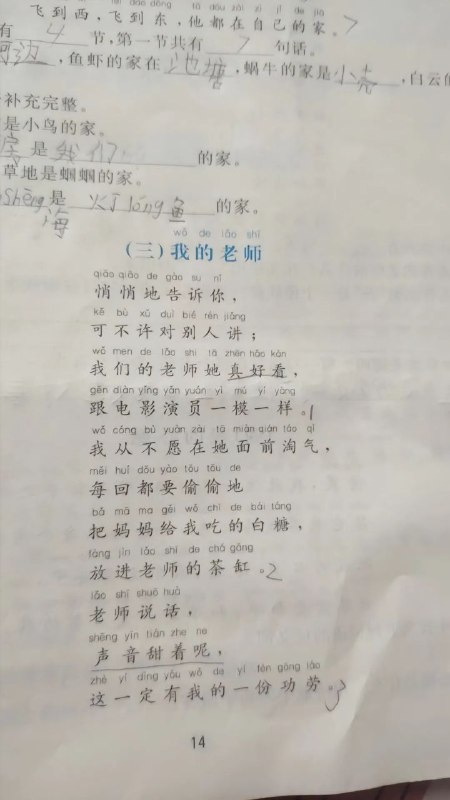 飞到西，飞到东，他都在自己的家。7
有 4 节，第一节共有 7 句话。
河边，鱼虾的家在 池塘，蜗牛的家是 小壳，白云的
补充完整。
是小鸟的家。
是 我们 的家。
草地是蝈蝈的家。
shēng是 灯lóng鱼 的家。
海
wǒ de lǎo shī
（三）我的老师
qiāo qiāo de gào su nǐ
悄悄地告诉你，
kě bù xǔ duì bié rén jiǎng
可不许对别人讲；
wǒ men de lǎo shī tā zhēn hǎo kàn
我们的老师她真好看，
gēn diàn yǐng yǎn yuán yì mú yí yàng
跟电影演员一模一样。1
wǒ cóng bù yuàn zài tā miàn qián táo qì
我从不愿在她面前淘气，
měi huí dōu yào tōu tōu de
每回都要偷偷地
bǎ mā ma gěi wǒ chī de bái táng
把妈妈给我吃的白糖，
fàng jìn lǎo shī de chá gāng
放进老师的茶缸。2
lǎo shī shuō huà
老师说话，
shēng yīn tián zhe ne
声音甜着呢，
zhè yí dìng yǒu wǒ de yí fèn gōng láo
这一定有我的一份功劳。3
14